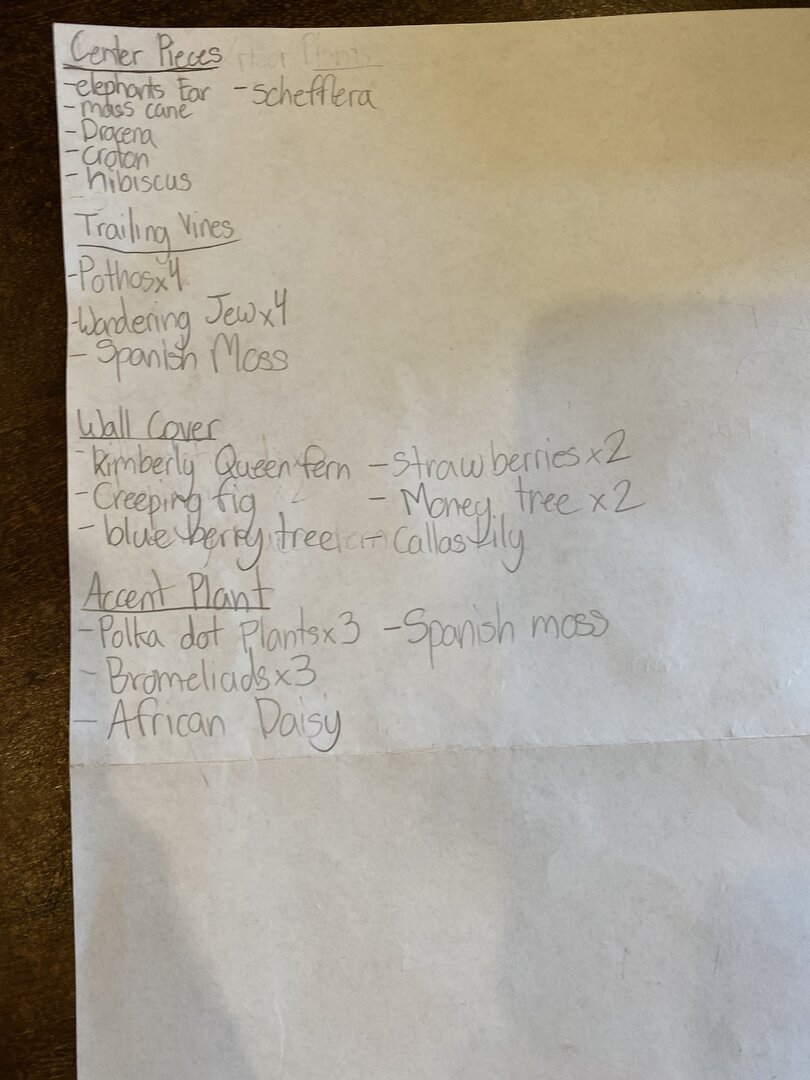 Center Pieces
-elephants Ear -schefflera
-mass cane
-Dracena
-croton
-hibiscus
Trailing Vines
-Pothosx4
-Wandering Jewx4
- Spanish Moss
Wall Cover
-kimberly Queen fern -strawberriesx2
-Creeping fig - Money tree x2
- blue berry tree - Callas Lily
Accent Plant
-Polka dot Plantsx3 -Spanish moss
- Bromeliadsx3
- African Daisy